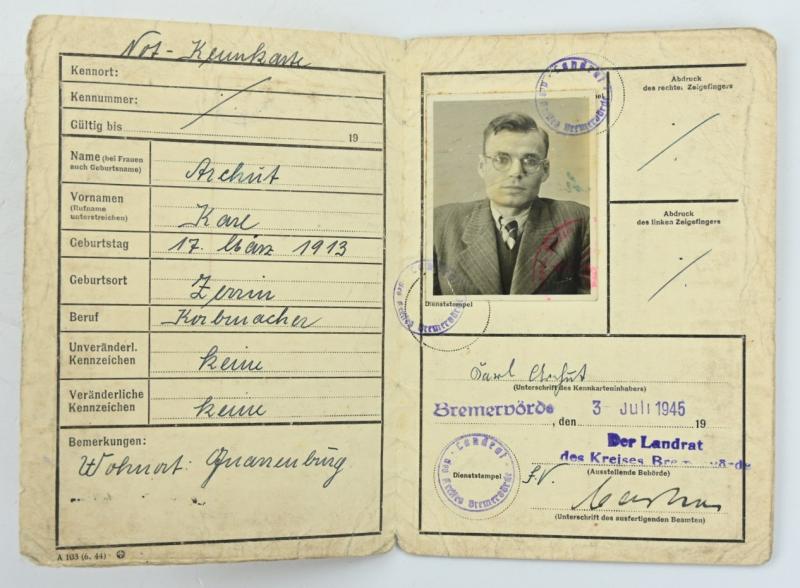 Not-Kennkarte
Kennort:
Kennummer:
Gültig bis 19
Name (bei Frauen
auch Geburtsname)
Archut
Vornamen
(Rufname
unterstreichen)
Karl
Geburtstag 17. März 1913
Geburtsort Zerrin
Beruf Korbmacher
Unveränderl.
Kennzeichen keine
Veränderliche
Kennzeichen keine
Bemerkungen:
Wohnort: Gnarrenburg
A 103 (6. 44)
Landrat
des Kreises Bremervörde
Abdruck
des rechten Zeigefingers
Abdruck
des linken Zeigefingers
Landrat
des Kreises Bremervörde
Dienststempel
Karl Archut
(Unterschrift des Kennkarteninhabers)
Bremervörde, den 3. Juli 1945 19
Der Landrat
des Kreises Bremervörde
(Ausstellende Behörde)
Landrat
des Kreises Bremervörde
Dienststempel
(Unterschrift des ausfertigenden Beamten)